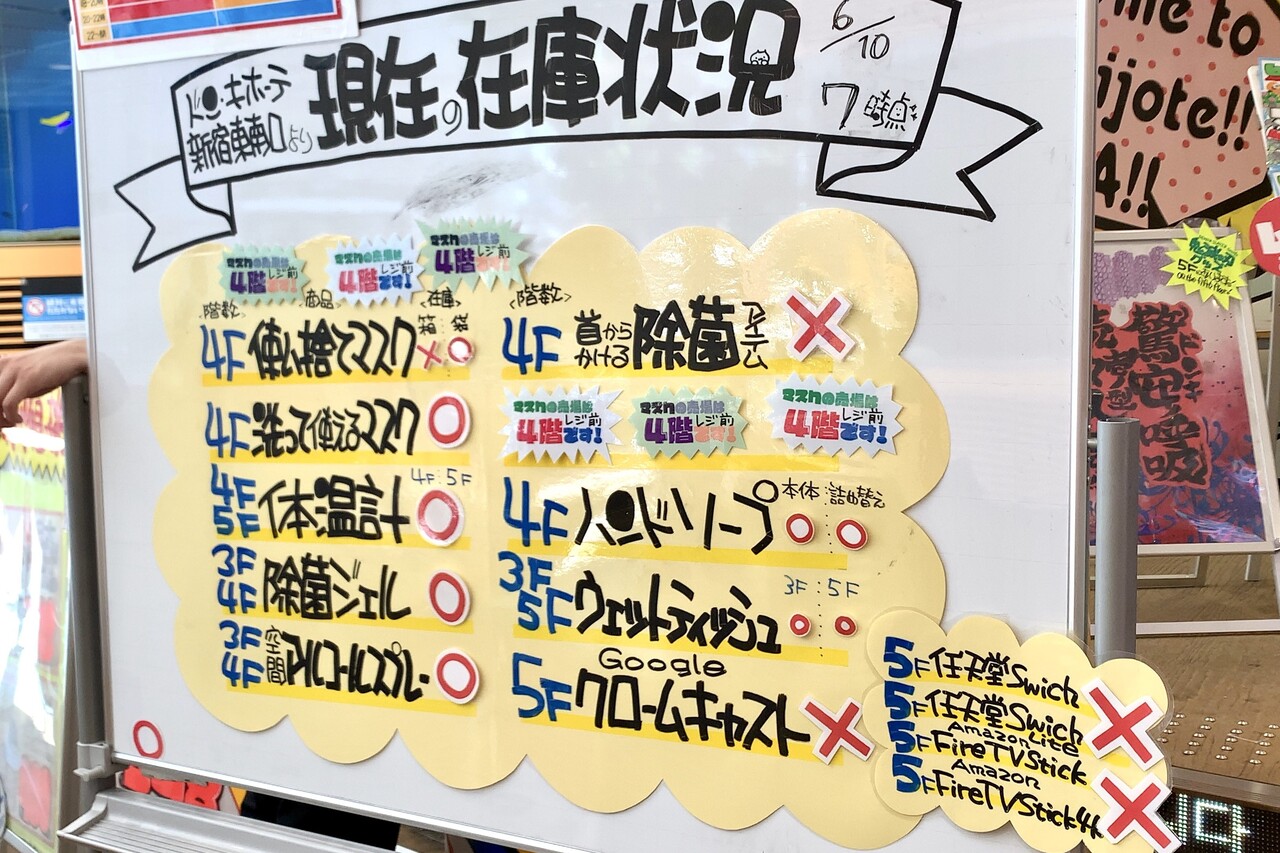 8-20時
20-22時
22～朝
ドン・キホーテ
新宿東南口より
現在の在庫状況
6/10
7時点
マスクの売場は
4階レジ前
です!
マスクの売場は
4階レジ前
です!
マスクの売場は
4階レジ前
です!
<階数> 商品 <在庫>
箱 袋
4F 使い捨てマスク × ○
4F 洗って使えるマスク ○
4F:5F
4F 5F 体温計 ○
3F 4F 除菌ジェル ○
3F 4F 空間アルコールスプレー ○
<階数>
4F 首からかける除菌アイテム ×
マスクの売場は
4階レジ前
です!
マスクの売場は
4階レジ前
です!
マスクの売場は
4階レジ前
です!
本体:詰め替え
4F ハンドソープ ○ ○
3F:5F
3F 5F ウェットティッシュ ○ ○
Google
5F クロームキャスト ×
5F 任天堂Swich
5F 任天堂Swich Lite ×
Amazon
5F FireTVStick
Amazon
5F FireTVStick4k ×
me to
ijote!!
4!!
驚安